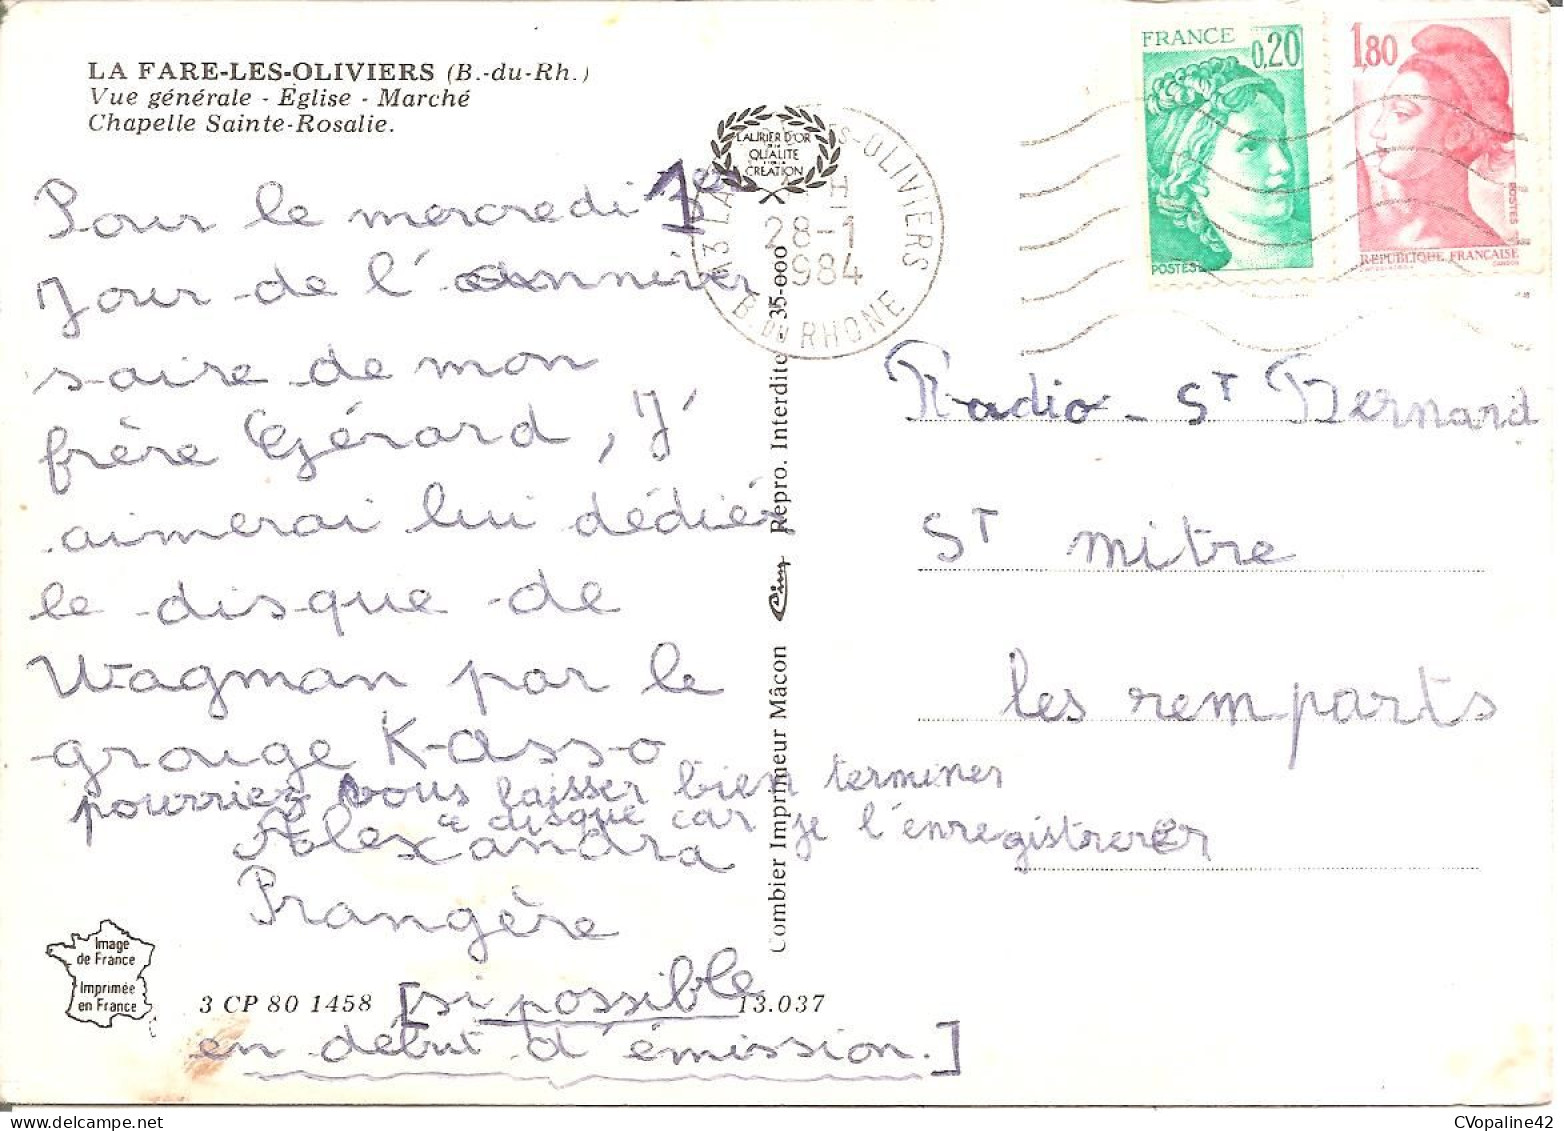 LA FARE-LES-OLIVIERS (B.-du-Rh.)
Vue générale - Eglise - Marché
Chapelle Sainte-Rosalie.
LAURIER D'OR
QUALITE
CREATION
28-1
1984
B. DU RHONE
FRANCE
0,20
POSTES
1,80
POSTES
REPUBLIQUE FRANÇAISE
Pour le mercredi 1er
Jour de l'anniver
saire de mon
frère Gérard, J'
aimerai lui dédiér
le disque de
Wagman par le
grouge K-asso
pourriez vous laisser bien terminer
ce disque car je l'enregistrerer
Alexandra
Prangère
[si possible
en début d'émission.]
Radio - ST Bernard
ST mitre
les remparts
Combier Imprimeur Mâcon Cim Repro. Interdite - 35-000
Image
de France
Imprimée
en France
3 CP 80 1458
13.037
CVopaline42